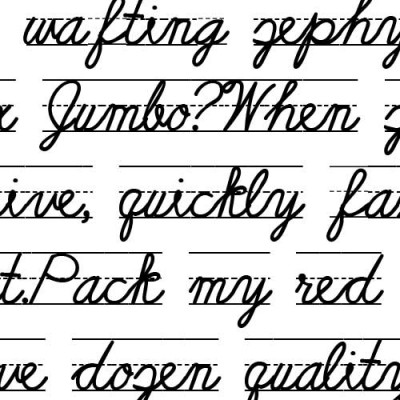 wafting zephy
x Jumbo? When z
ive, quickly fax
t. Pack my red
ve dozen quality